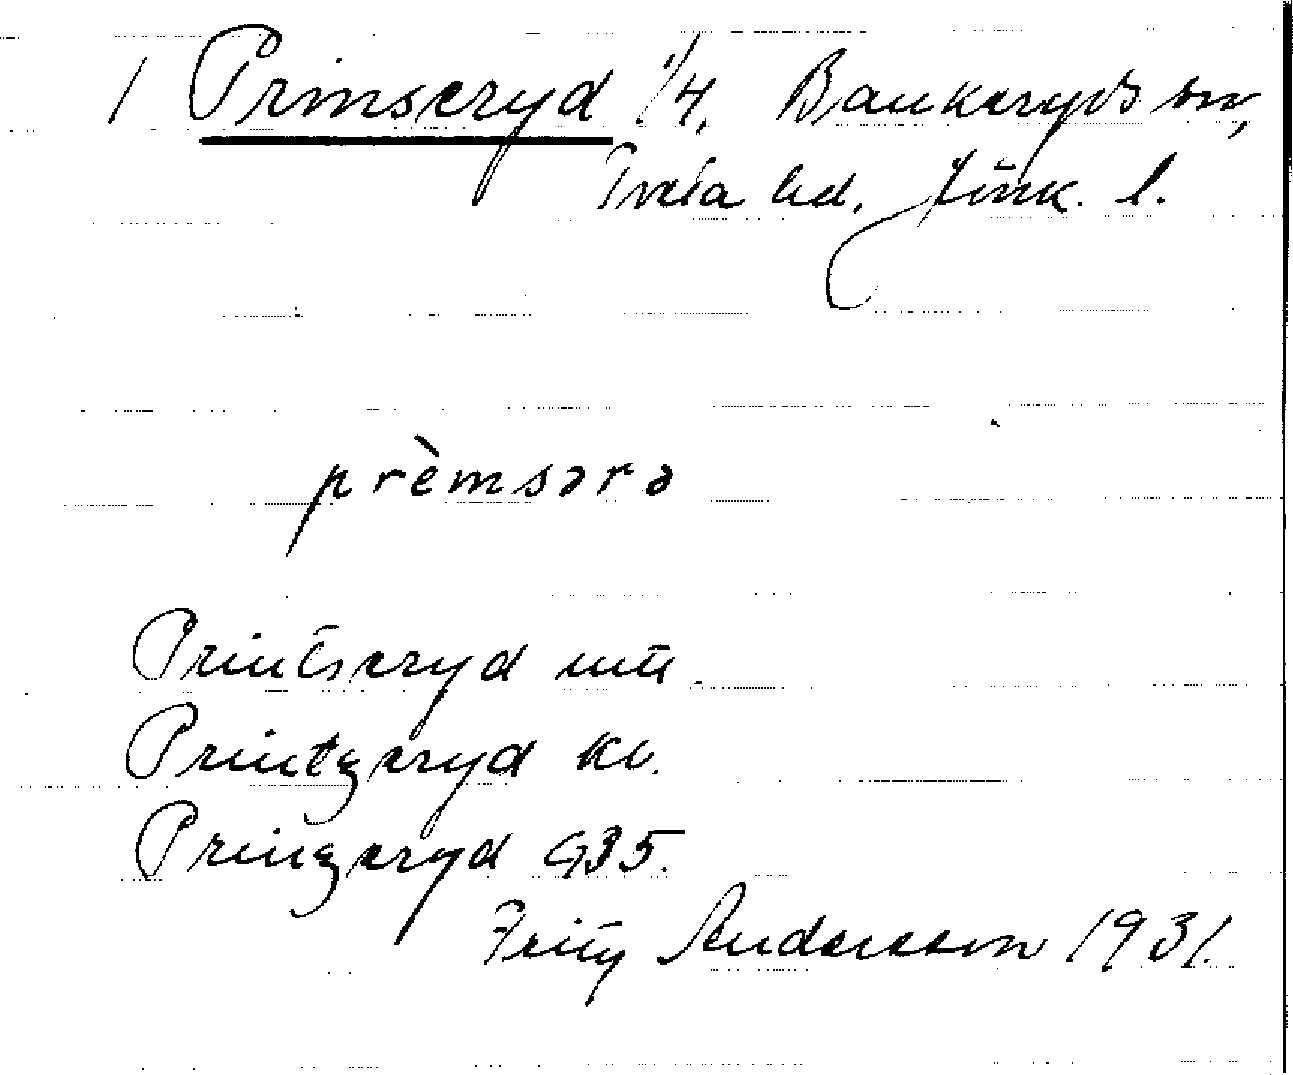 1 Prinseryd 1/4, Bankeryds sn,
Tveta hd, Jönk. l.
prèmsərə
Printseryd
Printzeryd kv.
Prinzeryd G35.
Fritz Andersson 1931.